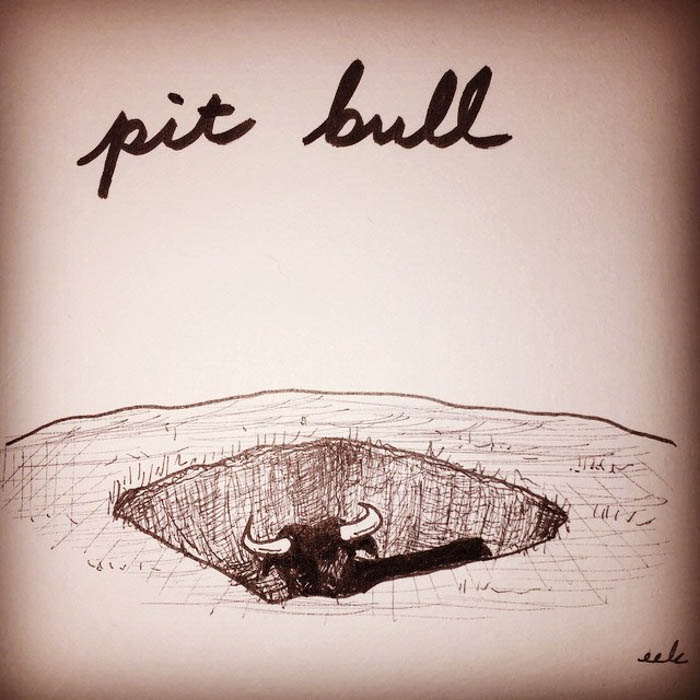 pit bull
eek